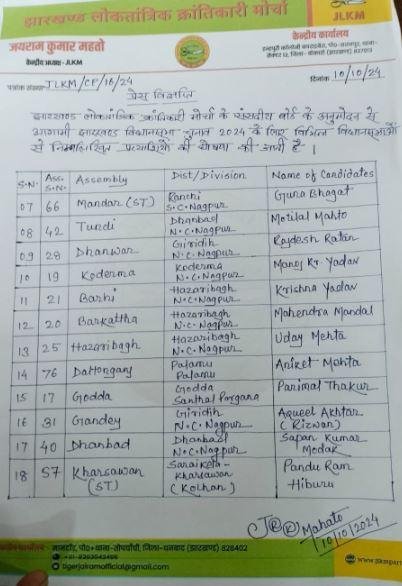 झारखण्ड लोकतांत्रिक क्रांतिकारी मोर्चा
JLKM
जयराम कुमार महतो
केन्द्रीय अध्यक्ष - JLKM
केन्द्रीय कार्यालय
पत्रांक संख्या- JLKM/CP/16/24
दिनांक 10/10/24
प्रेस विज्ञप्ति
झारखण्ड लोकतांत्रिक क्रांतिकारी मोर्चा के संसदीय बोर्ड के अनुमोदन से
आगामी झारखण्ड विधानसभा चुनाव 2024 के लिए विभिन्न विधानसभाओं
से निम्नलिखित प्रत्याशियों की घोषणा की जाती है ।
S.N. Ass. S.N. Assembly Dist/Division Name of Candidates
07 66 Mandar (ST) Ranchi S.C.Nagpur Guna Bhagat
08 42 Tundi Dhanbad N.C.Nagpur Motilal Mahto
09 28 Dhanwar Giridih N.C.Nagpur Rajdesh Ratan
10 19 Koderma Koderma N.C.Nagpur Manoj Kr Yadav
11 21 Barhi Hazaribagh N.C.Nagpur Krishna Yadav
12 20 Barkattha Hazaribagh N.C.Nagpur Mahendra Mandal
13 25 Hazaribagh Hazaribagh N.C.Nagpur Uday Mehta
14 76 Daltongang Palamu Palamu Aniket Mehta
15 17 Godda Godda Santhal Pargana Parimal Thakur
16 31 Gandey Giridih N.C.Nagpur Aqueel Akhtar (Rizwan)
17 40 Dhanbad Dhanbad N.C.Nagpur Sapan Kumar Modak
18 57 Kharsawan (ST) Saraikela- Kharsawan (Kolhan) Pandu Ram Hiburu
Mahato
10/10/2024
मानटांड, पो०+थाना-तोपचाँची, जिला-धनबाद (झारखण्ड) 828402
tigerjairamofficial@gmail.com